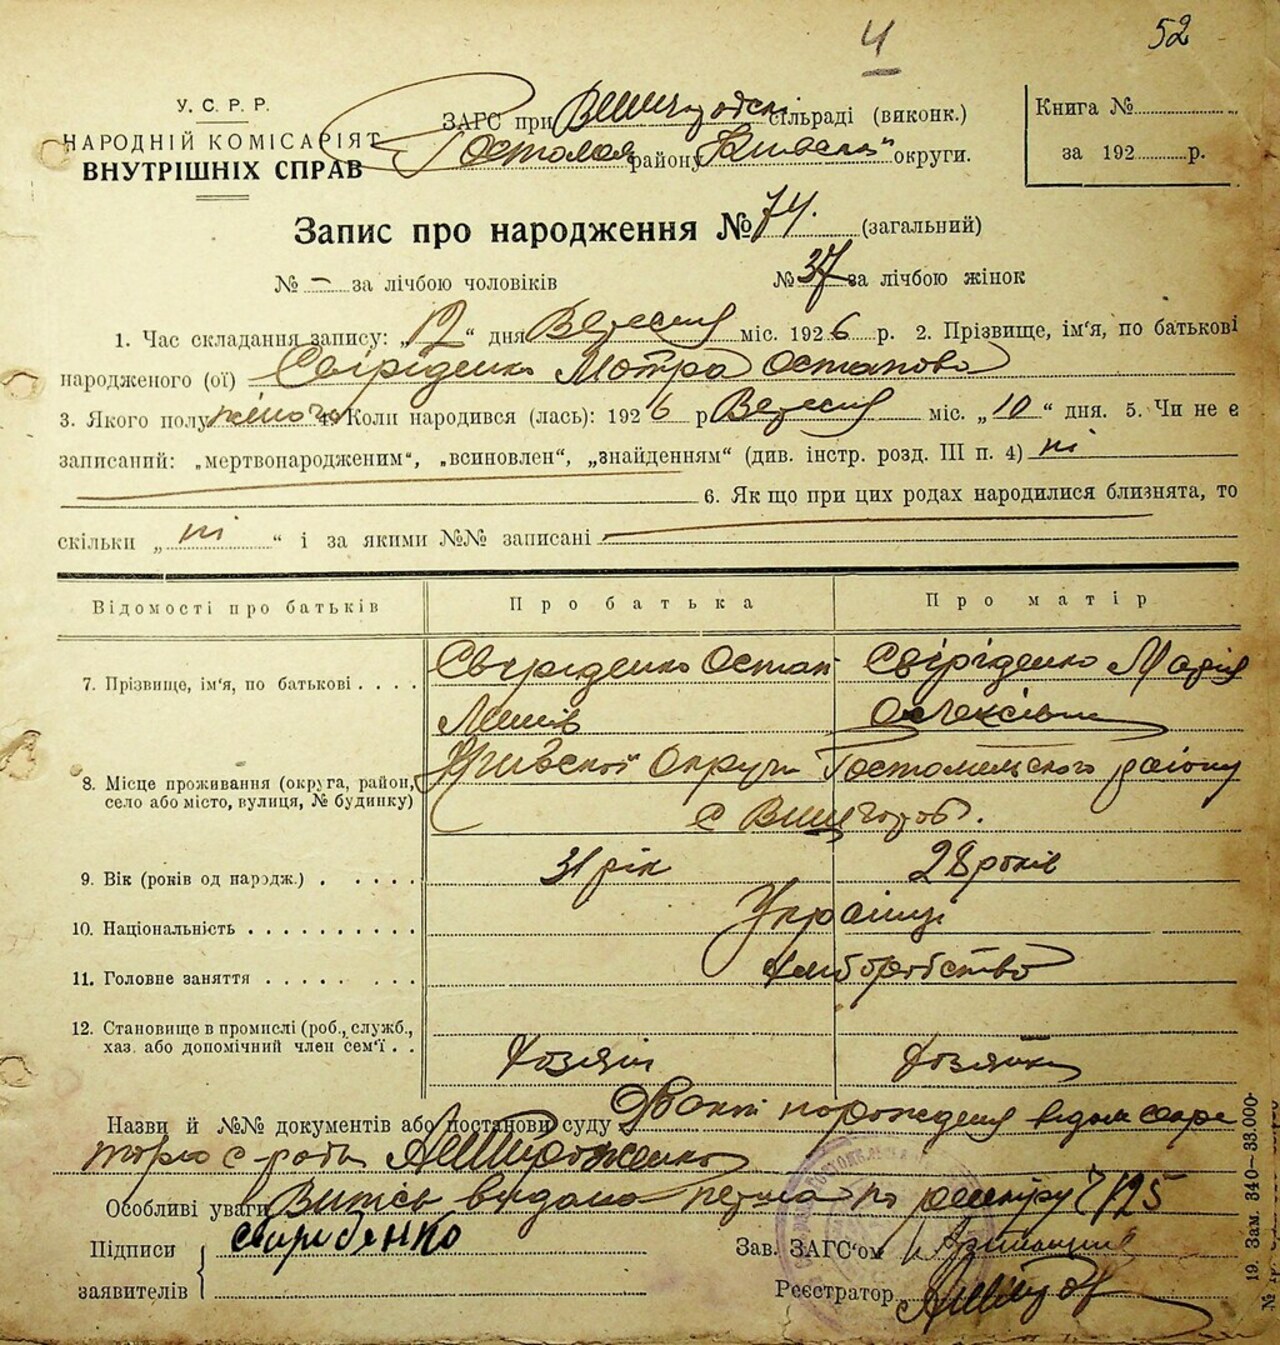 4
52
У. С. Р. Р.
НАРОДНІЙ КОМІСАРІЯТ
ВНУТРІШНІХ СПРАВ
ЗАГС при сільраді (виконк.)
району округи.
Книга №
за 192 р.
Запис про народження № 74. (загальний)
№ – за лічбою чоловіків № 37 за лічбою жінок
1. Час складання запису: „12“ дня Вересня міс. 1926 р. 2. Прізвище, ім'я, по батькові
народженого (ої) Свіріденко Мотра Остапова
3. Якого полу жіноч. 4. Коли народився (лась): 1926 р Вересня міс. „10“ дня. 5. Чи не є
записаний: „мертвонародженим“, „всиновлен“, „знайденням“ (див. інстр. розд. III п. 4) ні
6. Як що при цих родах народилися близнята, то
скільки „ні“ і за якими №№ записані
Відомості про батьків Про батька Про матір
7. Прізвище, ім'я, по батькові . . . . Свіріденко Остап Свіріденко Марія
Олексівна
8. Місце проживання (округа, район, село або місто, вулиця, № будинку) Київської Округи Гостомельського району
с Вишгород.
9. Вік (років од народж.) . . . . . 31 рік 28 років
10. Національність . . . . . . . . . . Українці
11. Головне заняття . . . . . . . . Хліборобство
12. Становище в промислі (роб., служб.,
хаз. або допомічний член сем'ї . . Хозяїн Хозяйка
Назви й №№ документів або постанови суду
Особливі уваги Витісь видано перша по реєстру 7/125
Підписи заявителів Свириденко
Зав. ЗАГС'ом
Реєстратор
19. Зам. 340—33.000